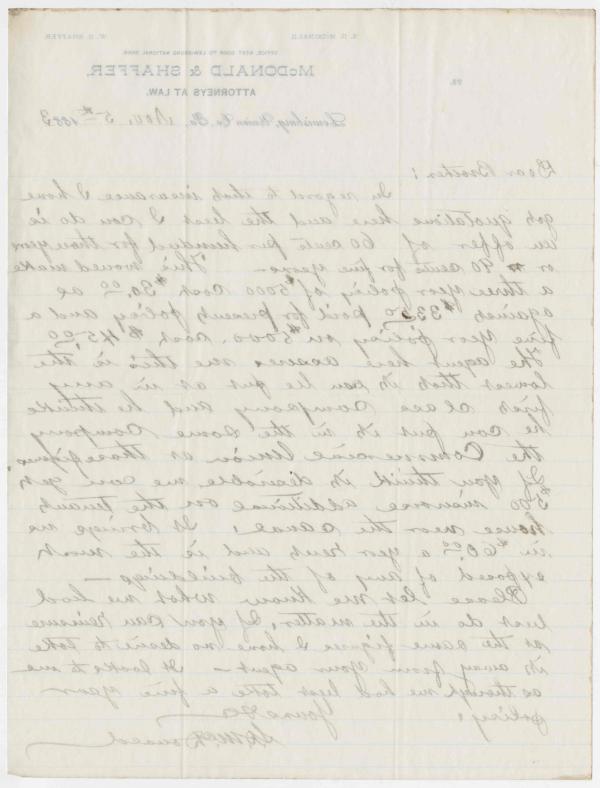 L. H. McDONALD. W. O. SHAFFER.
OFFICE, NEXT DOOR TO LEWISBURG NATIONAL BANK.
McDONALD & SHAFFER,
ATTORNEYS AT LAW.
Lewisburg, Union Co. Pa., Nov. 5th 1883
Dear Brother:
In regard to that insurance I have
got quotations here and the best I can do is
an offer of 60 cents per hundred for three years
or 90 cents for five years. This would make
a three year policy of $5000 cost $30.00 as
against $33 paid for present policy and a
five year policy on $5000. cost $45.00
The agent here assures me this is the
lowest that it can be put as in any
first class company and he thinks
he can put it in the same company
the Commercial Union at those figures.
If you think it desirable we can get
$500 insurance additional on the tenant
house near the canal. It brings us
in $60.00 a year rent and is the most
exposed of any of the buildings—
Please let me know what we had
best do in the matter, if you can reinsure
at the same figures I have no desire to take
it away from your agent— It looks to me
as though we had best take a five year
policy.
Yours &c
McDonald